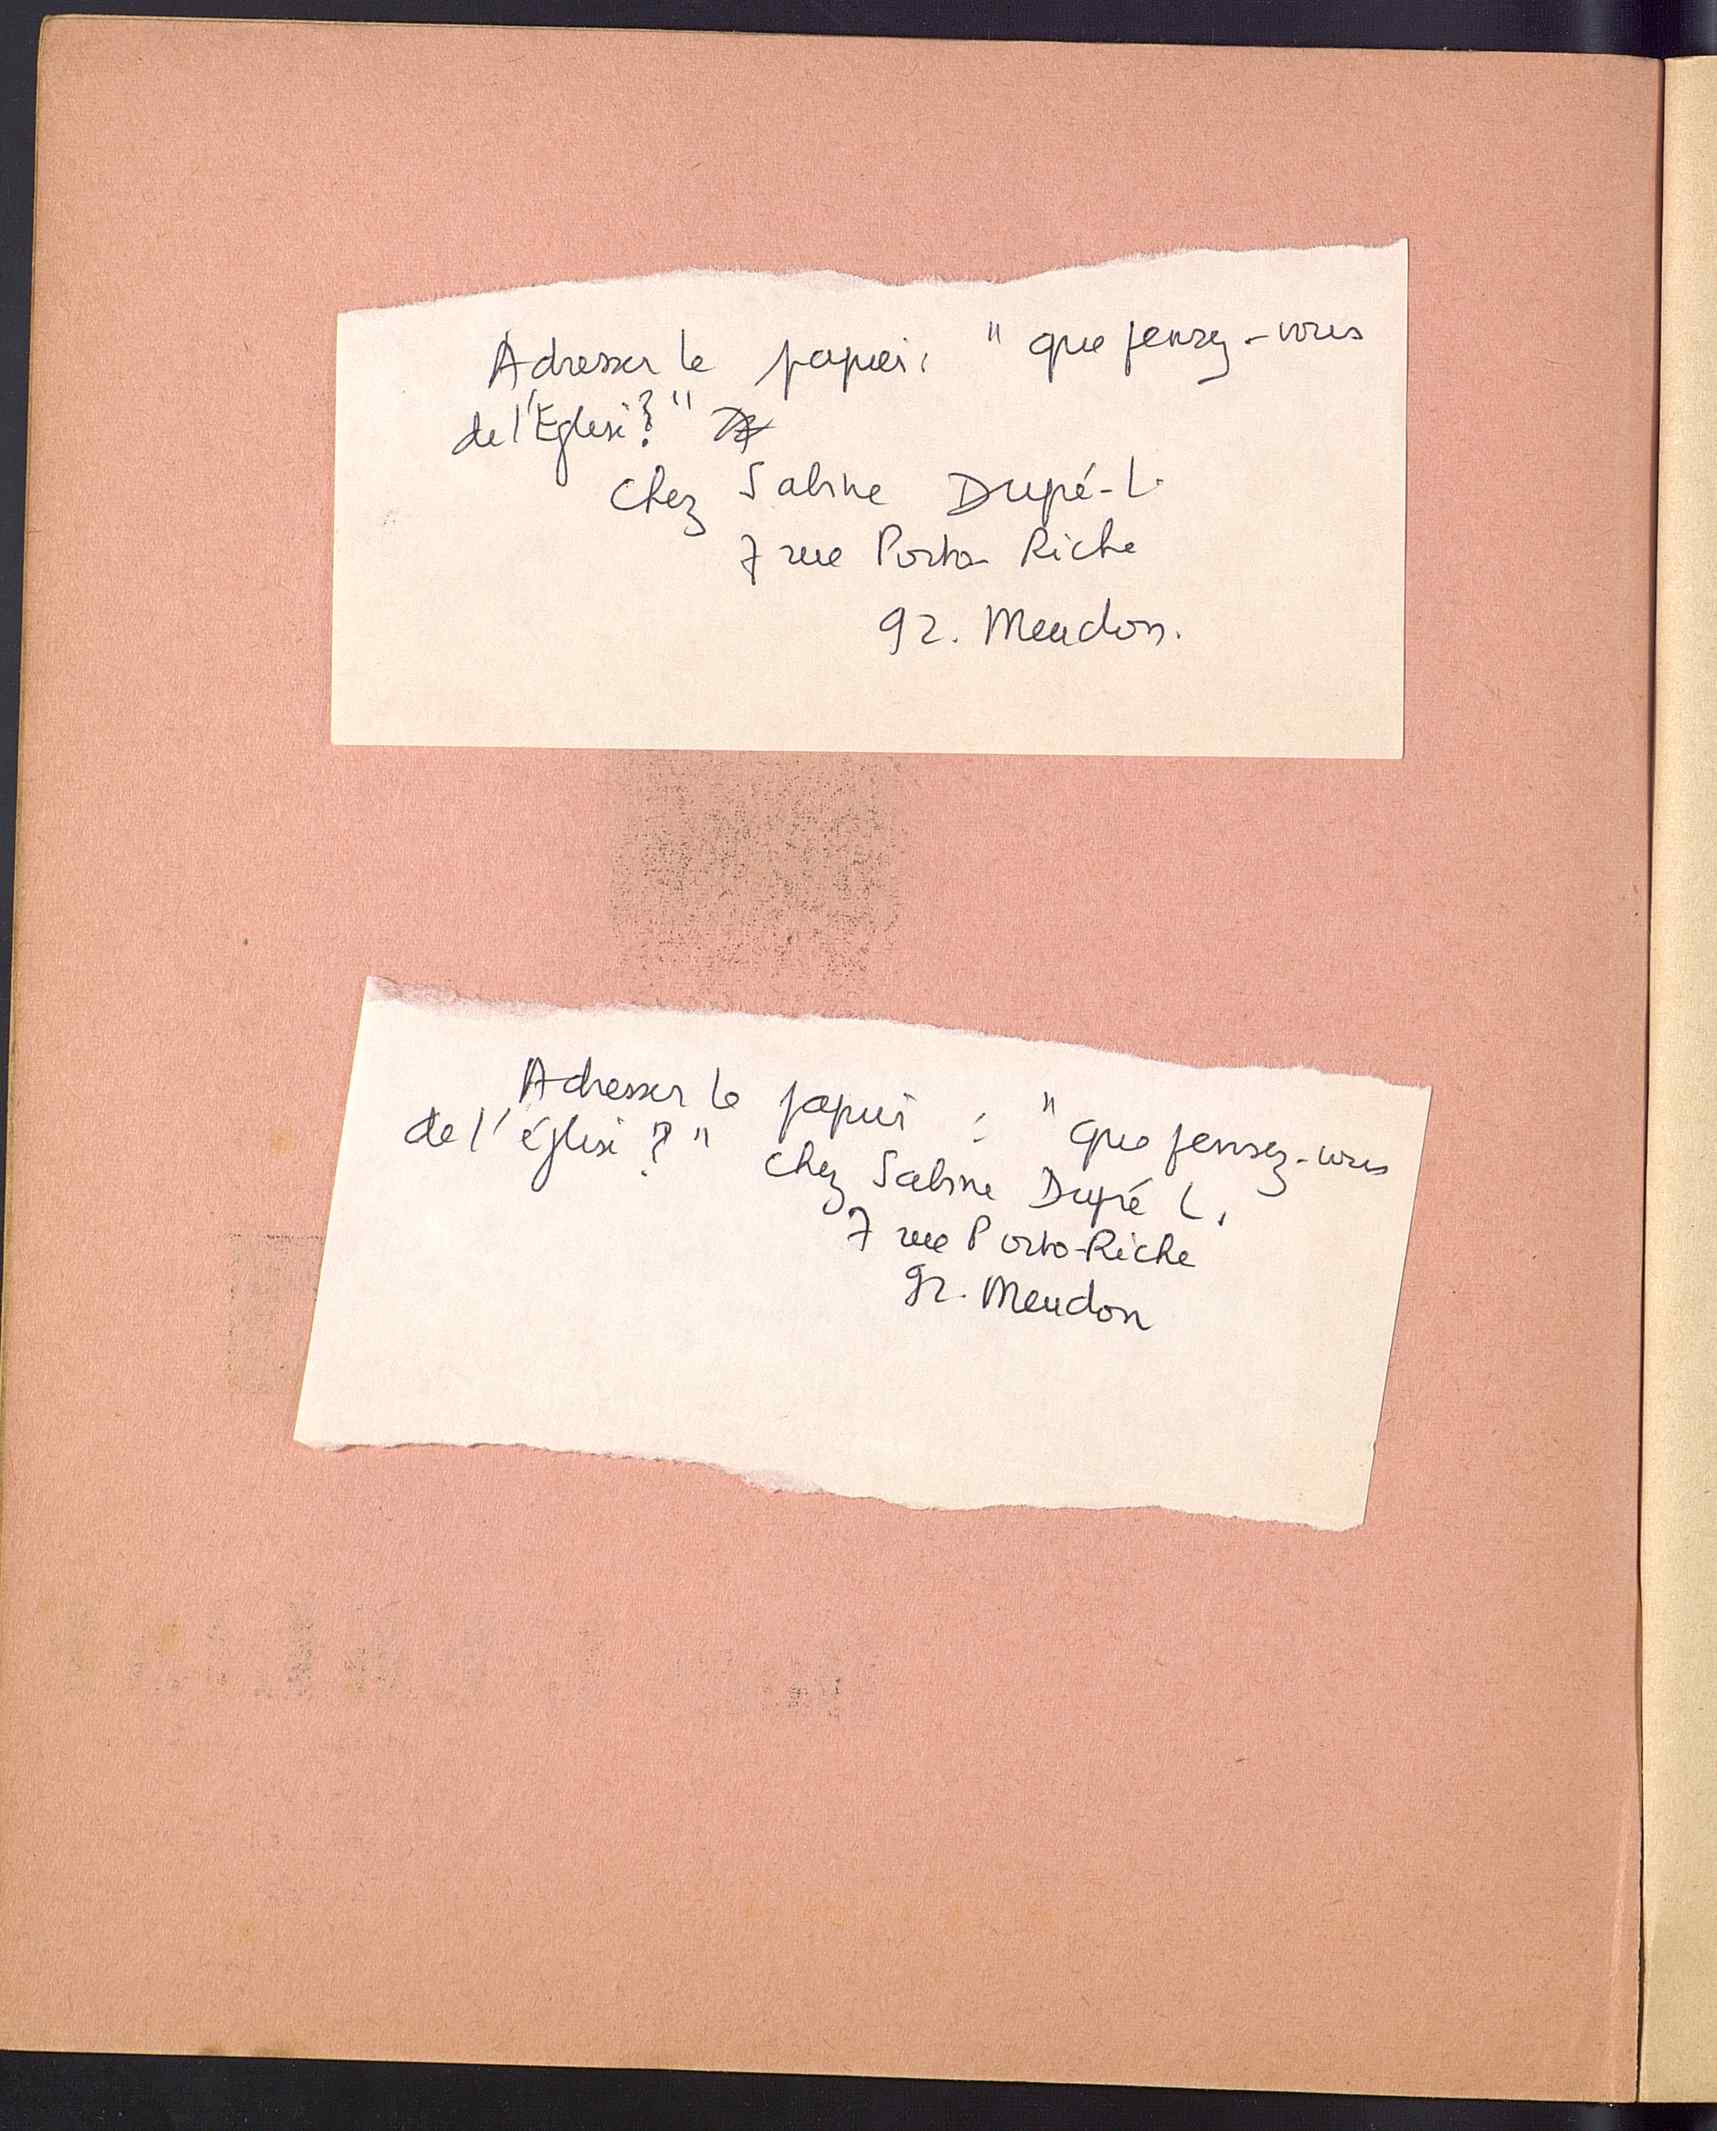 Adresser le papier : " que pensez-vous
de l'Eglise ? "
chez Sabine Dupé-L.
7 rue Porto-Riche
92. Meudon.
Adresser le papier : " que pensez-vous
de l'église ? " chez Sabine Dupé L.
7 rue Porto-Riche
92. Meudon